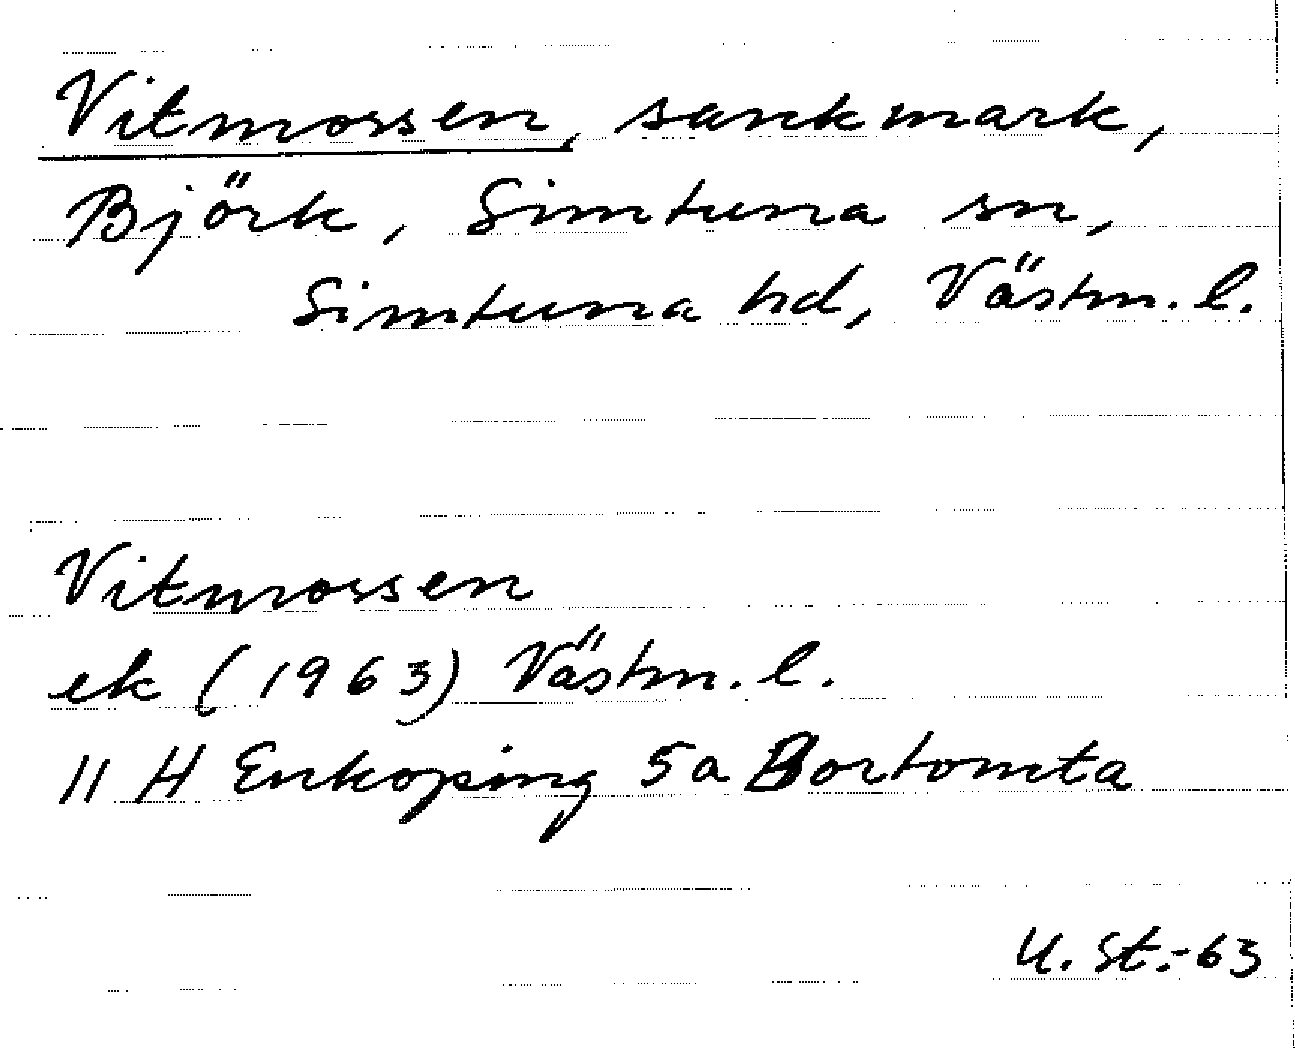 Vitmossen, sankmark,
Björk, Simtuna sn,
Simtuna hd, Västm. l.
Vitmossen
ek (1963) Västm. l.
11 H Enköping 5a Bortomta
U. St.-63